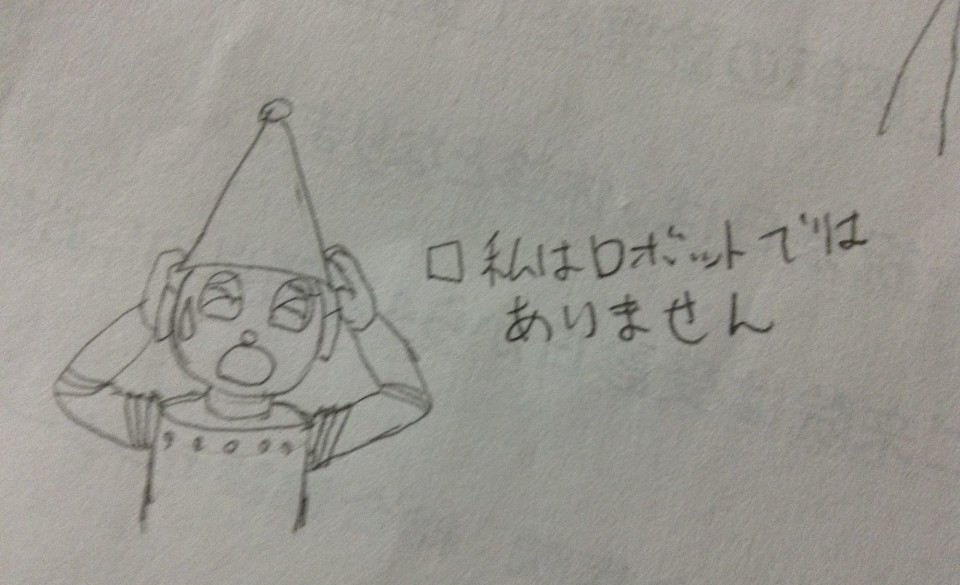 □私はロボットでは
ありません